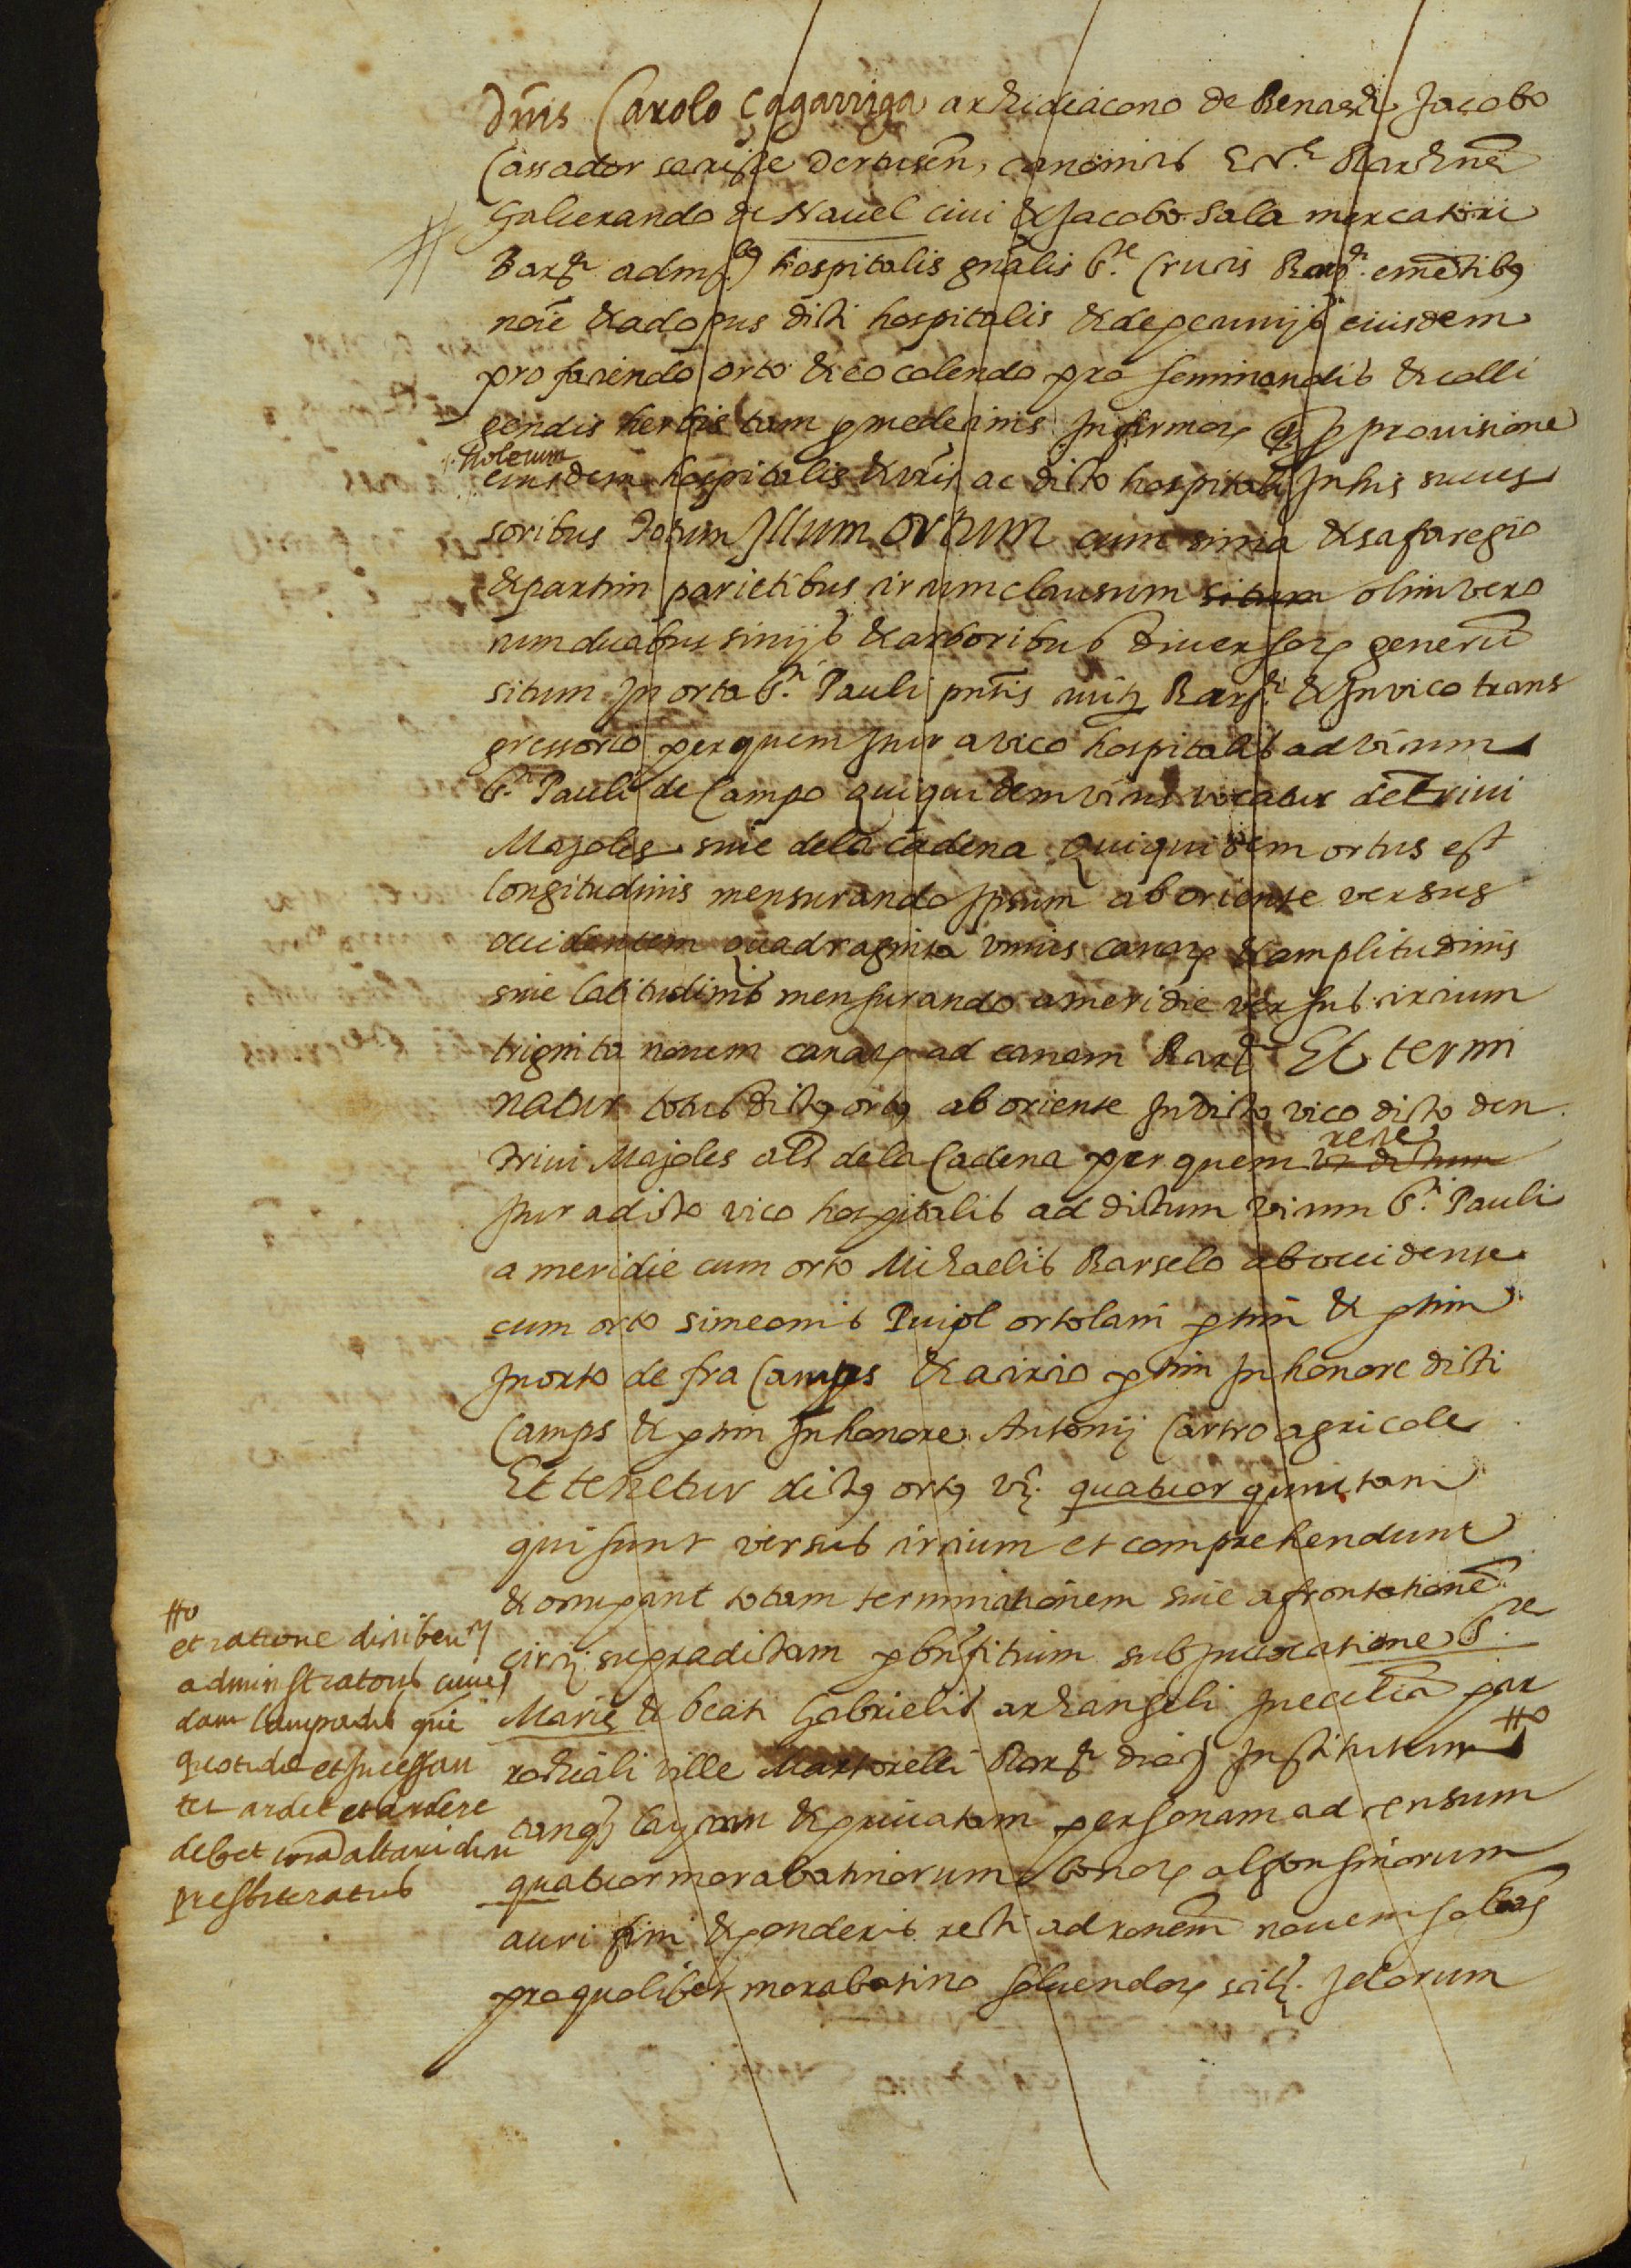 Dnis Carolo Çagarriga archidiacono de Benasch Jacobo
Cassador sacriste Dertusen, canonicis Barchne
Galcerando de Navel civi & Jacobo Sala mercatori
Barchne admribus hospitalis gnalis Ste Crucis Barchne ementibus
noie & ad opus dicti hospitalis & de pecunijs eiusdem
pro faciendo orto & eo colendo pro seminandis & colli
gendis herbis tam p medecinis Infirmorum q p provisione
holerum
eiusdem hospitalis & vris ac dicto hospitali In his succes
soribus Totum Illum ortum cum sinia & safaregio
& partim parietibus circumclausum situm olim vero
cum duabus sinijs & arboribus diversorum generum
situm In orta Sti Pauli pntis civitatis Barchne & In vico trans
gressorio per quem Itur a vico hospitalis ad vicum
Sti Pauli de Campo qui quidem vicus vocatur den Trivi
Majoles sive dela cadena Qui quidem ortus est
longitudinis mensurando Ipsum ab oriente versus
occidentem quadraginta unius canarum & amplitudinis
sive latitudinis mensurando a meridie versus circium
triginta novem canarum ad canam Barchne Et termi
natur totus dictus ortus ab oriente In dicto vico dicto den
Trivi Majoles als dela Cadena per quem ut dictum
recte
Itur a dicto vico hospitalis ad dictum vicum Sti Pauli
a meridie cum orto Michaelis Barselo ab occidente
cum orto Simeonis Puiol ortolani ptim & ptim
In orto de fra Camps & a circio ptim In honore dicti
Camps & ptim In honore Antonij Cartro agricole
Et tenetur dictus ortus vz. quatuor quinctani
qui sunt versus circium et comprehendunt
& occupant totam terminationem sive afrontatione
circij supradictam p bnfitium sub Invocatione Ste
Marie & beati Gabrielis archangeli In ecclia par
rochiali ville Martorelli Barchne dioc Institutum #o
tanq laycum & privatam personam ad censum
quatuor morabatinorum bonorum alfonsinorum
auri fini & ponderis recti ad ronem novem solidos
pro quolibet morabatino solvendorum scilt. Ictorum
#o
et ratione
administratoris cuius
dam lampadis que
quotidie et Incessan
ter ardet et ardere
debet coram altari dicti
presbiteratus